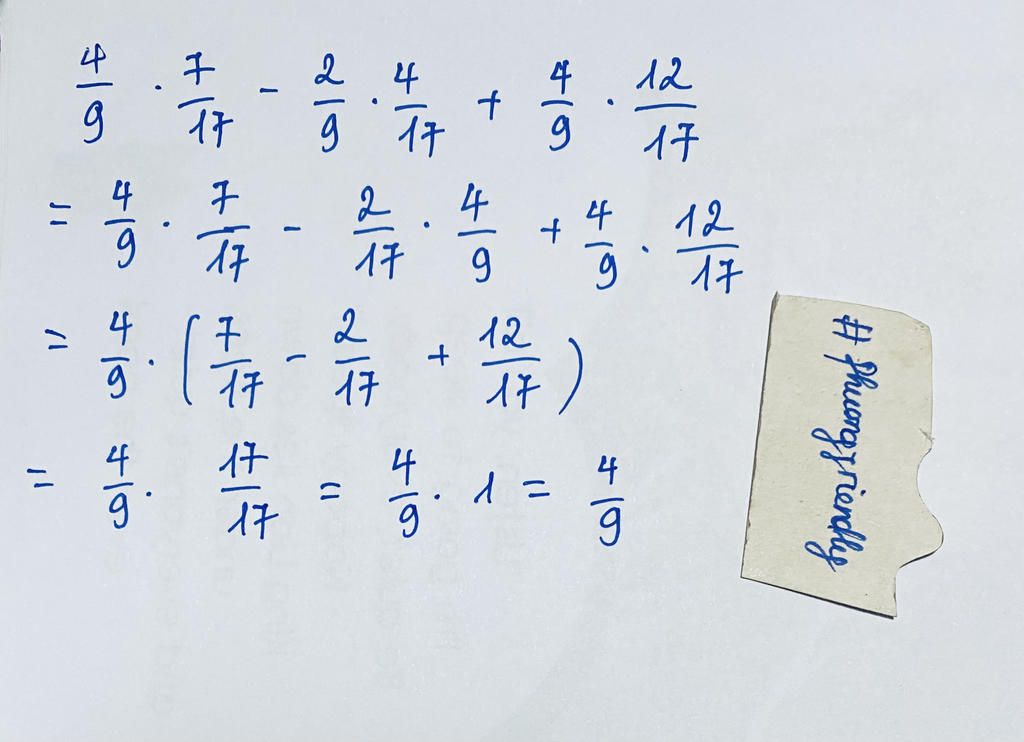 4/9 · 7/17 - 2/9 · 4/17 + 4/9 · 12/17
= 4/9 · 7/17 - 2/17 · 4/9 + 4/9 · 12/17
= 4/9 · (7/17 - 2/17 + 12/17)
= 4/9 · 17/17 = 4/9 · 1 = 4/9
#phuongfriendly